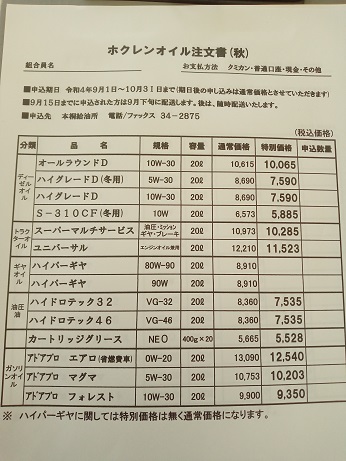 ホクレンオイル注文書(秋)
組合員名 お支払方法 クミカン・普通口座・現金・その他
■申込期日 令和4年9月1日～10月31日まで(期日後の申し込みは通常価格とさせていただきます)
■9月15日までに申込された方は9月下旬に配送します。後は、随時配送いたします。
■申込先 本桐給油所 電話/ファックス 34-2875
(税込価格)
分類 品名 規格 容量 通常価格 特別価格 申込数量
ディーゼルオイル オールラウンドD 10W-30 20ℓ 10,615 10,065
ハイグレードD(冬用) 5W-30 20ℓ 8,690 7,590
ハイグレードD 10W-30 20ℓ 8,690 7,590
S-310CF(冬用) 10W 20ℓ 6,573 5,885
トラクターオイル スーパーマルチサービス 油圧・ミッションギヤ・ブレーキ 20ℓ 10,973 10,285
ユニバーサル エンジンオイル兼用 20ℓ 12,210 11,523
ギヤオイル ハイパーギヤ 80W-90 20ℓ 8,910
ハイパーギヤ 90W 20ℓ 8,910
油圧油 ハイドロテック32 VG-32 20ℓ 8,360 7,535
ハイドロテック46 VG-46 20ℓ 8,360 7,535
カートリッジグリース NEO 400g×20 5,665 5,528
ガソリンオイル アドアプロ エアロ(省燃費車) 0W-20 20ℓ 13,090 12,540
アドアプロ マグマ 5W-30 20ℓ 10,753 10,203
アドアプロ フォレスト 10W-30 20ℓ 9,900 9,350
※ ハイパーギヤに関しては特別価格は無く通常価格になります。